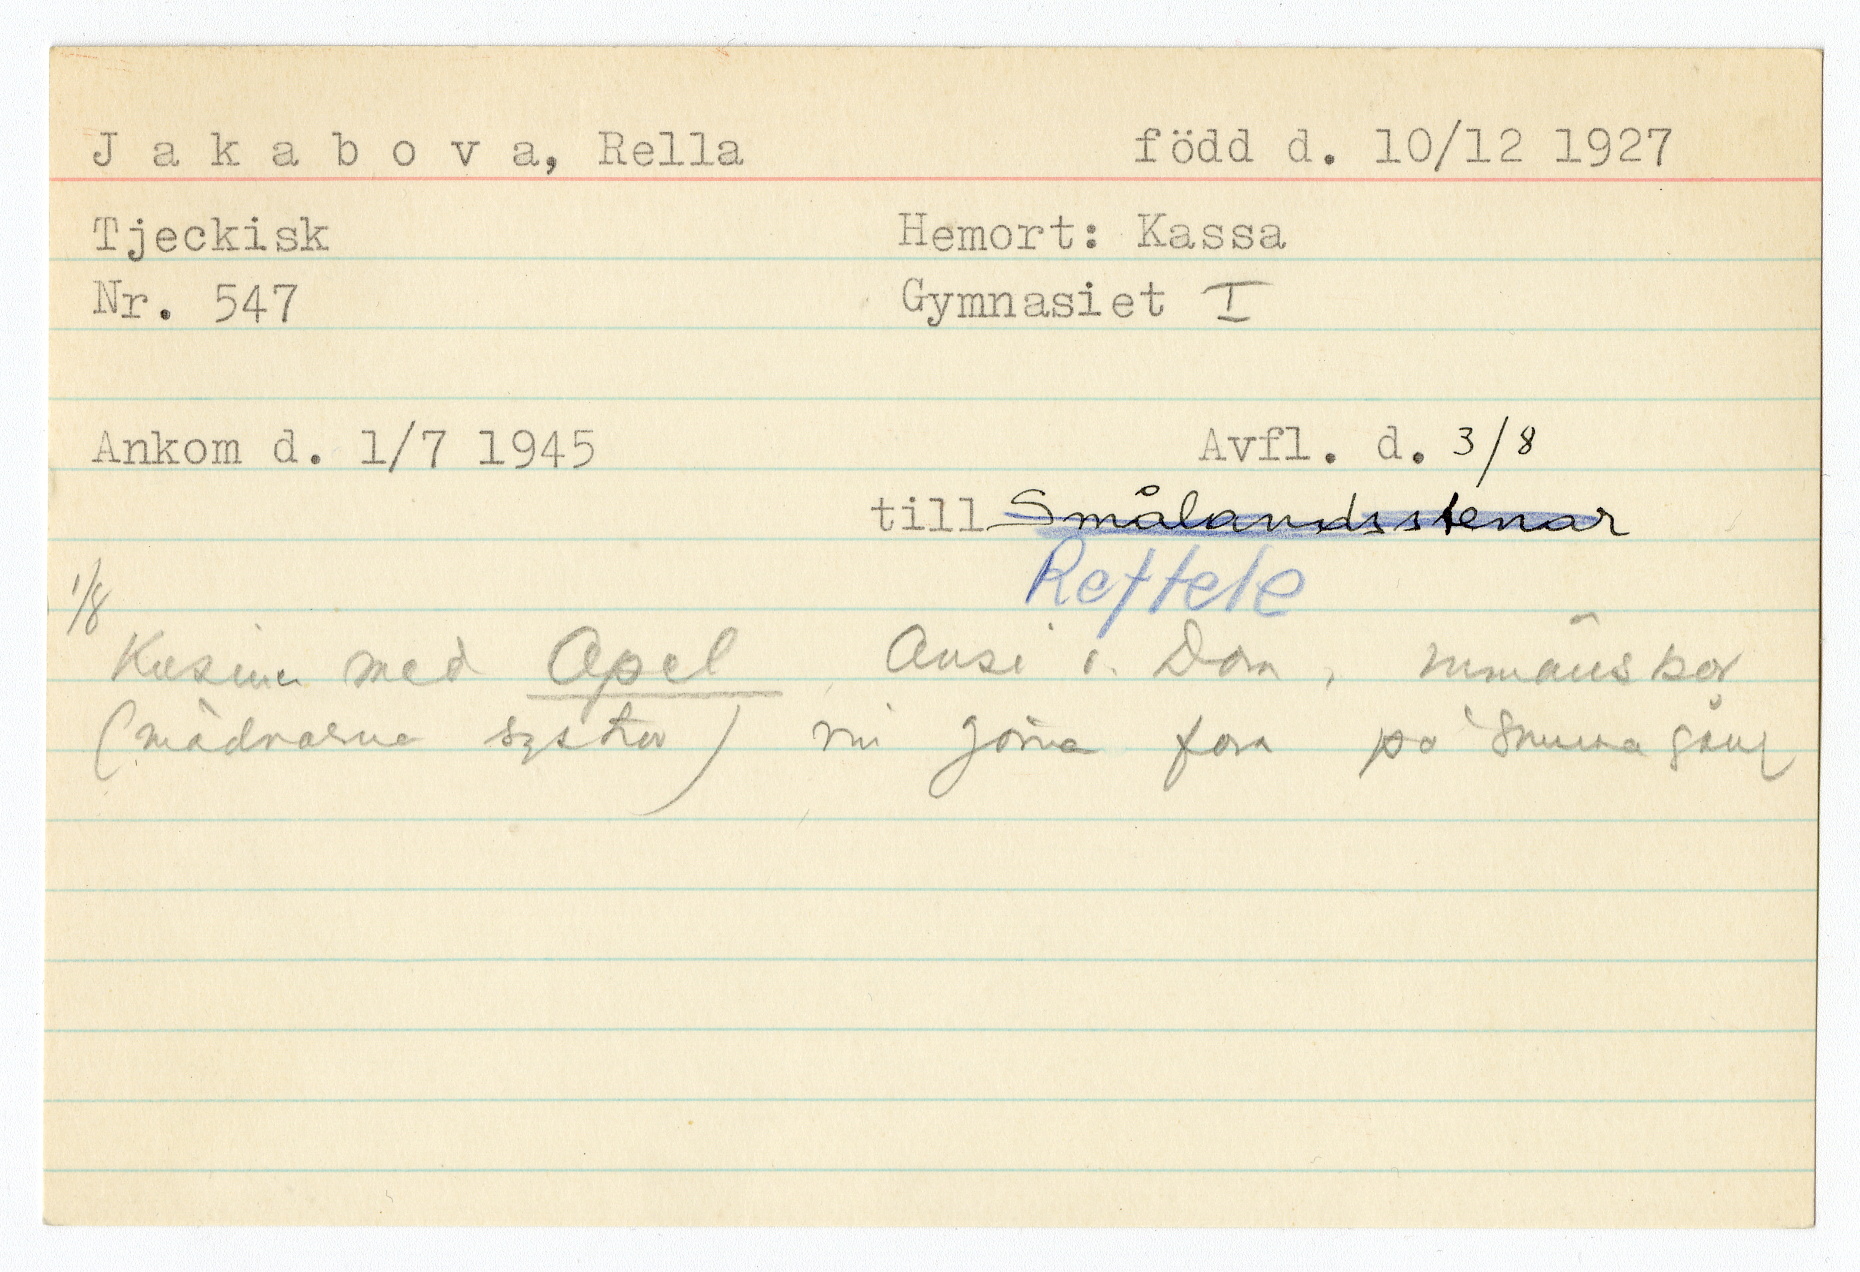 J a k a b o v a, Rella född d. 10/12 1927
Tjeckisk Hemort: Kassa
Nr. 547 Gymnasiet I
Ankom d. 1/7 1945 Avfl. d. 3/8
till Smålandsstenar
Reftele
1/8
Kusin med Apel, i Dom,
(mödrarna systrar) vill gärna fara på samma gång